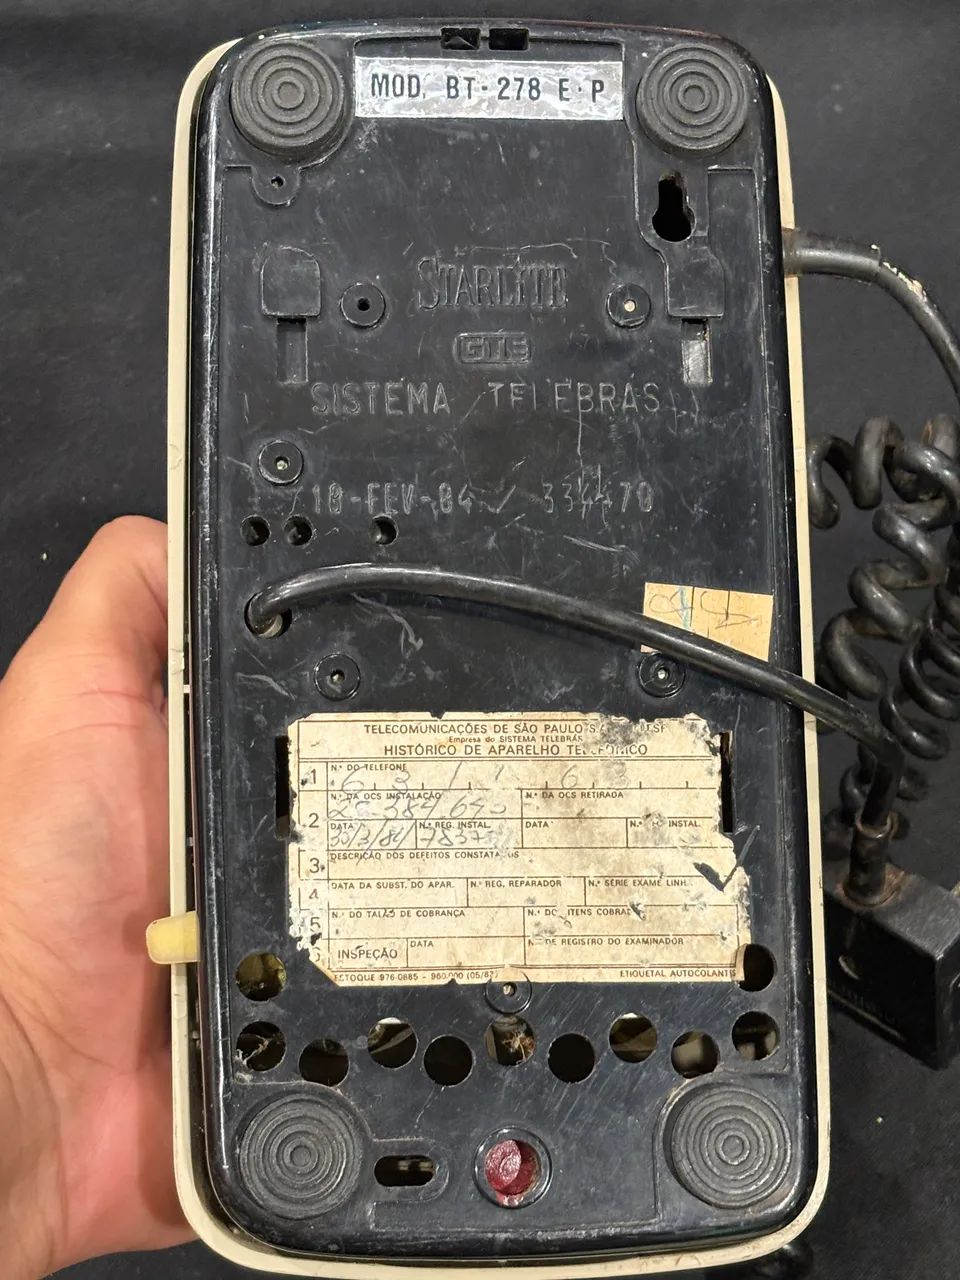 MOD. BT-278 E·P
STARLITE
GTE
SISTEMA TELEBRÁS
18-FEV-84
TELECOMUNICAÇÕES DE SÃO PAULO S.A.
Empresa do SISTEMA TELEBRÁS
HISTÓRICO DE APARELHO TELEFÔNICO
1 N.º DO TELEFONE
N.º DA OCS INSTALAÇÃO N.º DA OCS RETIRADA
2 DATA N.º REG. INSTAL. DATA INSTAL.
3 DESCRIÇÃO DOS DEFEITOS CONSTATADOS
4 DATA DA SUBST. DO APAR. N.º REG. REPARADOR N.º SÉRIE EXAME LINH.
5 N.º DO TALÃO DE COBRANÇA ITENS
INSPEÇÃO DATA DE REGISTRO DO EXAMINADOR
ESTOQUE 976-0885 - 960.000 (05/83) ETIQUETAL AUTOCOLANTES